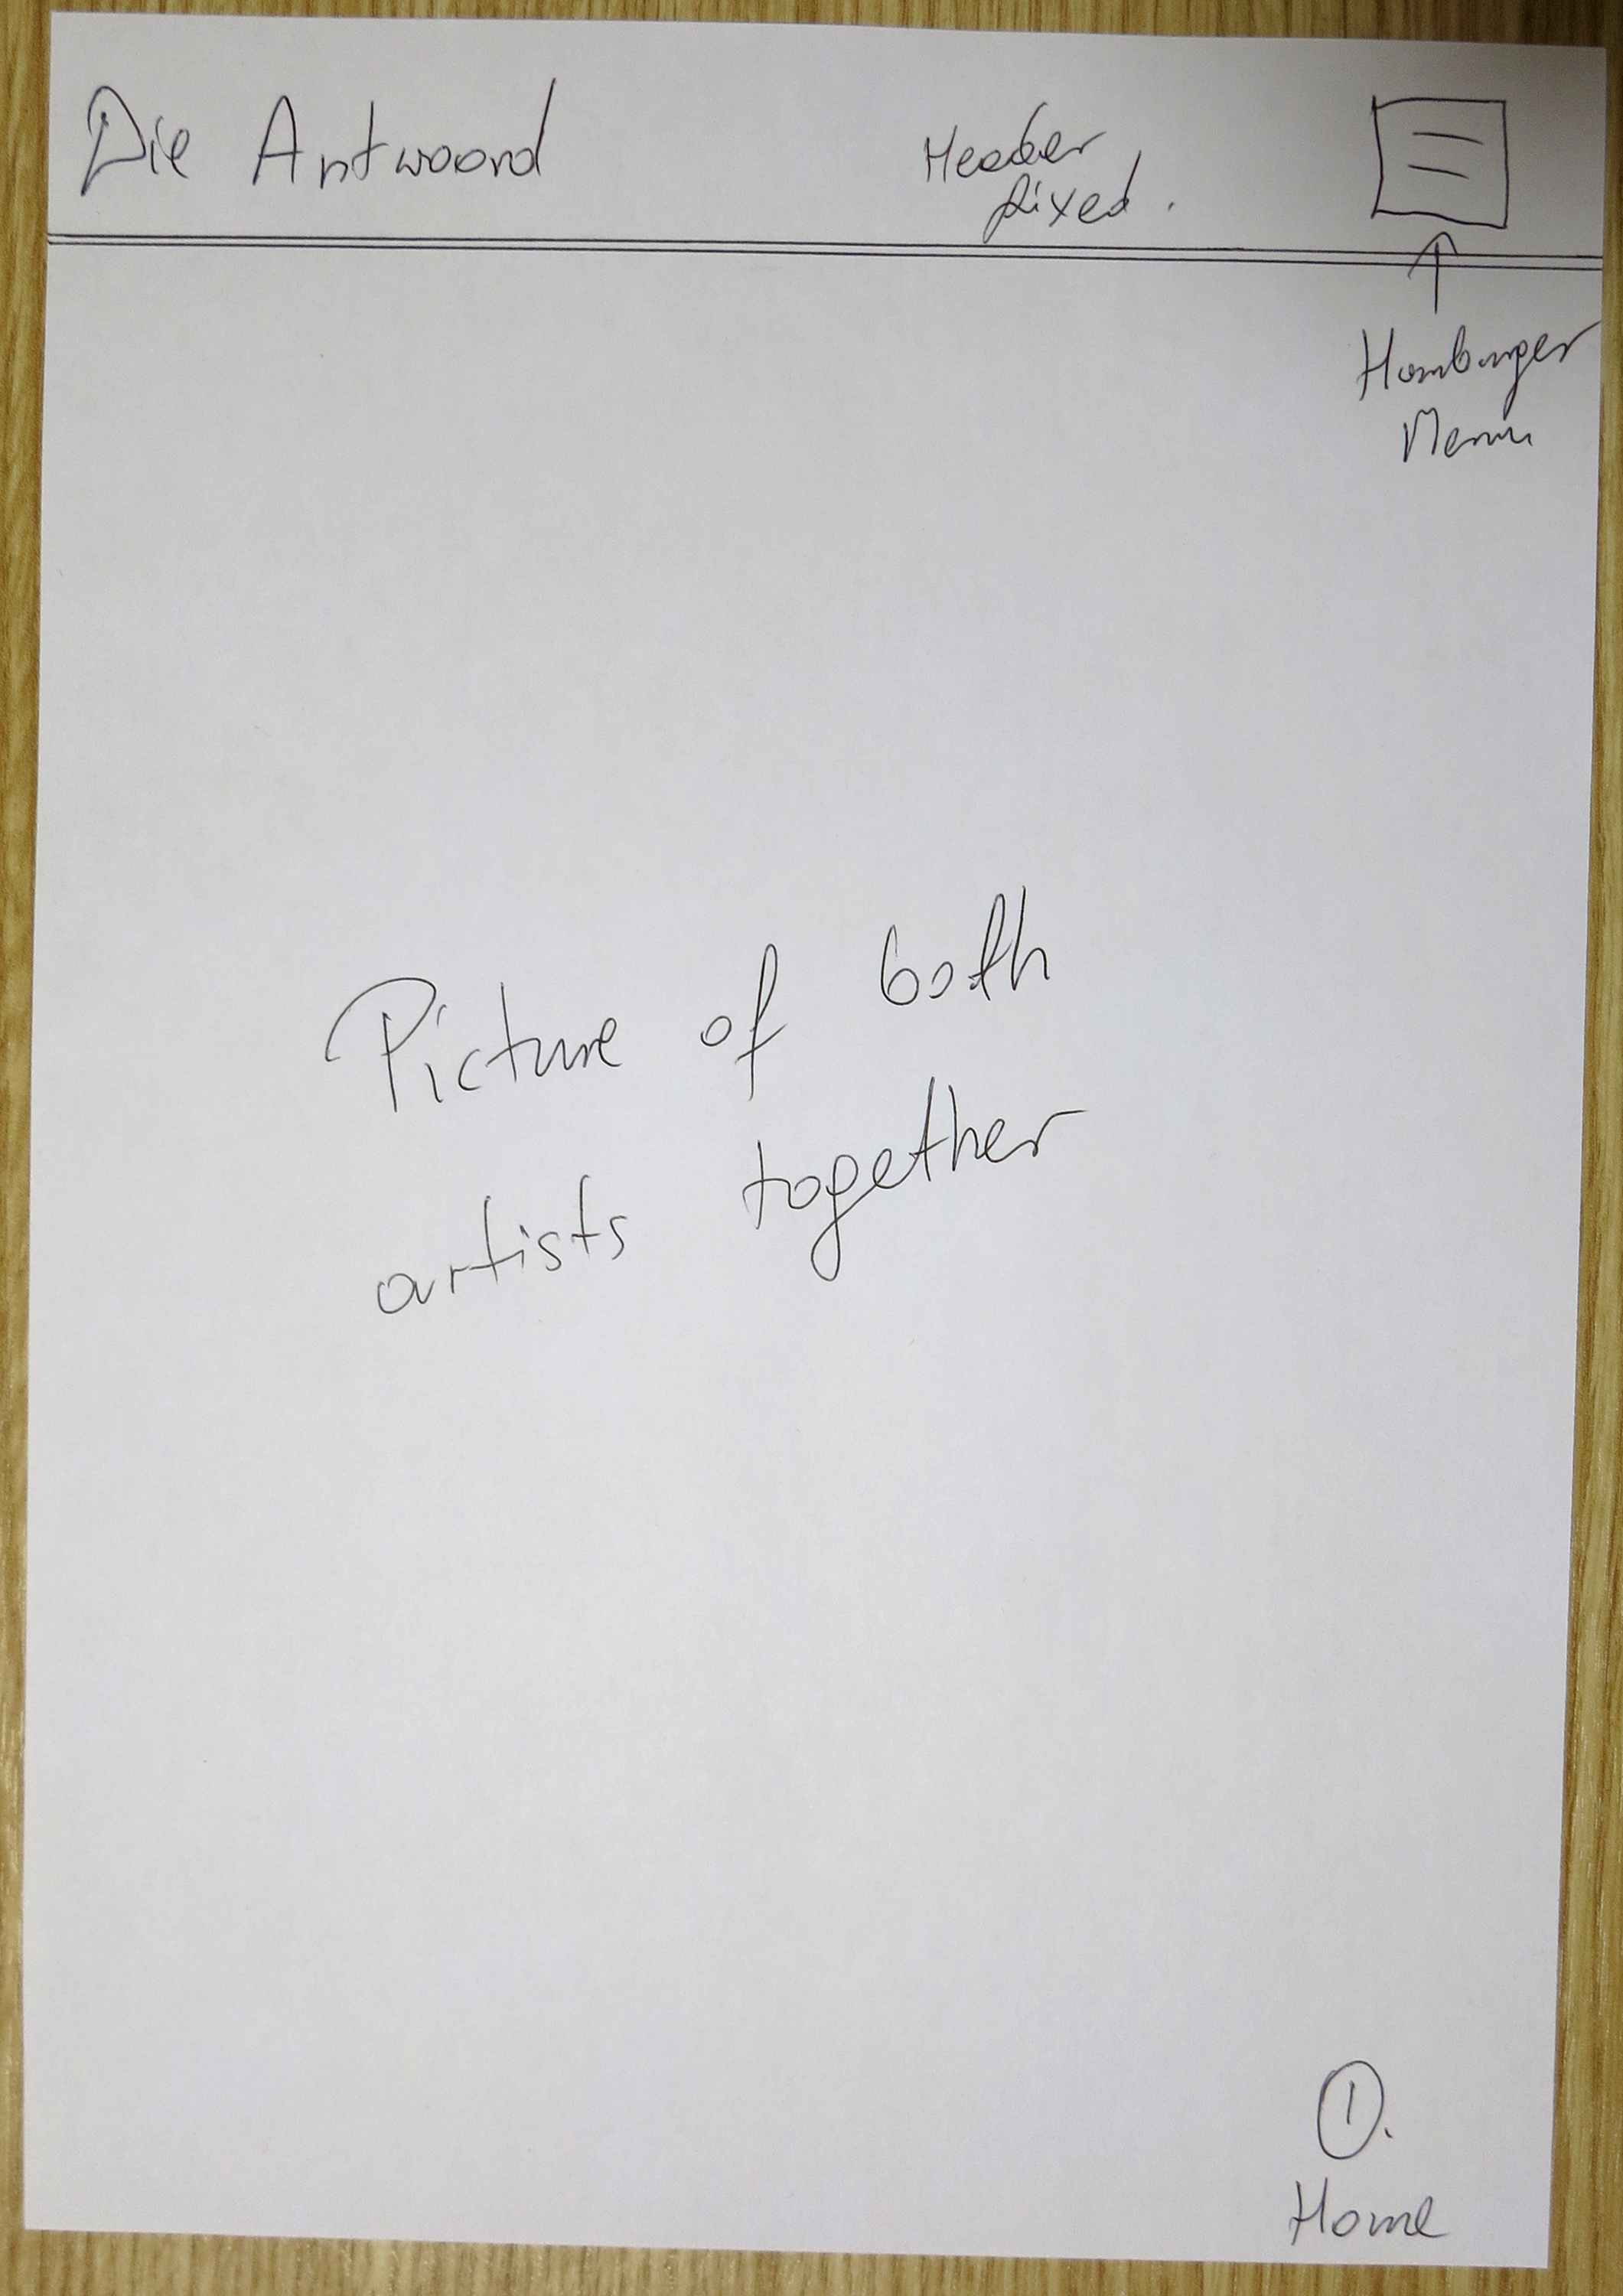 Die Antwoord
Header
fixed.
Hamburger
Menu
Picture of both
artists together
1.
Home